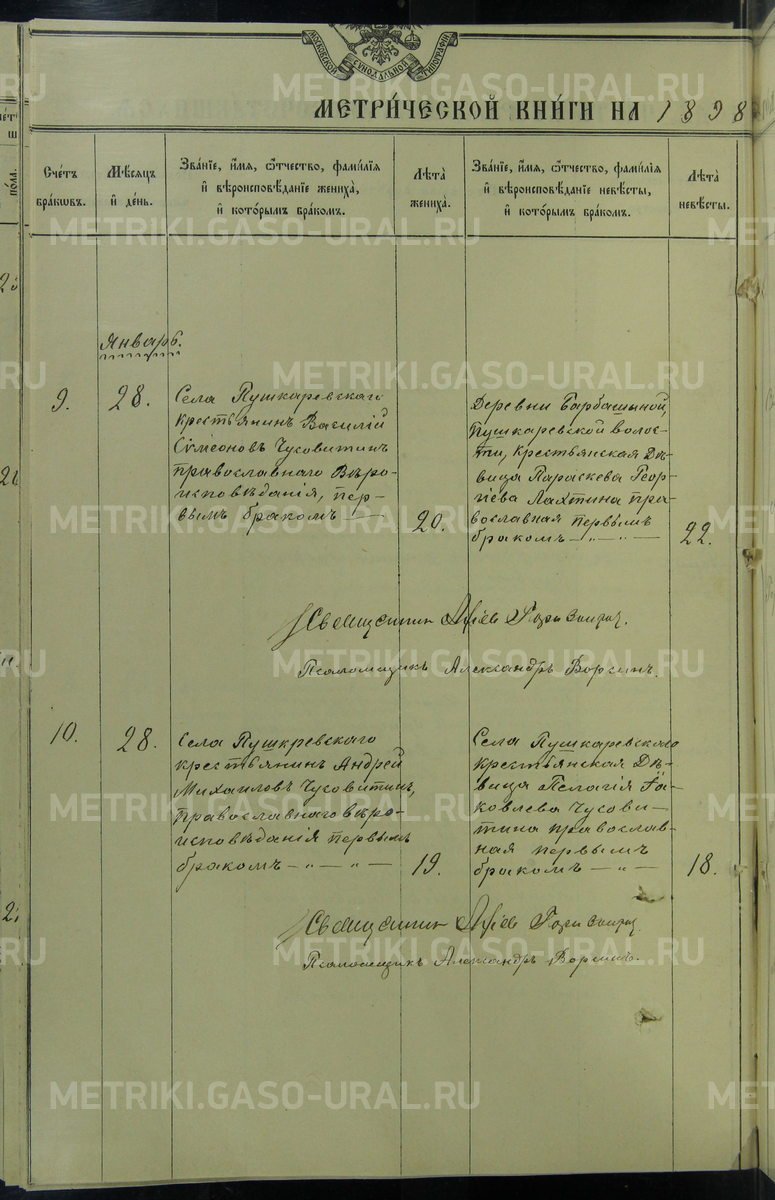 МОСКОВСКОЙ СѴНОДАЛЬНОЙ ТИПОГРАФІИ
МЕТРИ́ЧЕСКОЙ КНИ́ГИ НА 1898
Сче́тъ бра́кѡвъ.
Мѣ́сѧцъ и҆ де́нь.
Зва́нїе, и҆́мѧ, ѻ҆́тчество, фами́лїѧ
и҆ вѣроисповѣ́данїе жениха̀,
и҆ кото́рымъ бра́комъ.
Лѣ́та жениха̀.
Зва́нїе, и҆́мѧ, ѻ҆́тчество, фами́лїѧ
и҆ вѣроисповѣ́данїе невѣ́сты,
и҆ кото́рымъ бра́комъ.
Лѣ́та невѣ́сты.
Январь.
9.
28.
Села Пушкаревскаго
крестьянинъ Василій
Сѵмеоновъ Чусовитинъ
православнаго Вѣро-
исповѣданія, пер-
вымъ бракомъ —
20.
Деревни Барбашиной,
Пушкаревской волос-
ти, крестьянская Дѣ-
вица Параскева Геор-
гіева Лахтина пра-
вославная первымъ
бракомъ — „ — „ —
22.
Священник
Псаломщикъ Александръ Ворсинъ.
10.
28.
Села Пушкревскаго
крестьянинъ Андрей
Михаиловъ Чусовитинъ,
православнаго вѣро-
исповѣданія первымъ
бракомъ — „ — „ —
19.
Села Пушкаревскаго
крестьянская Дѣ-
вица Пелагія Іа-
ковлева Чусови-
тина православ-
ная первымъ
бракомъ — „ —
18.
Священник
Псаломщикъ Александръ Ворсинъ.
METRIKI.GASO-URAL.RU